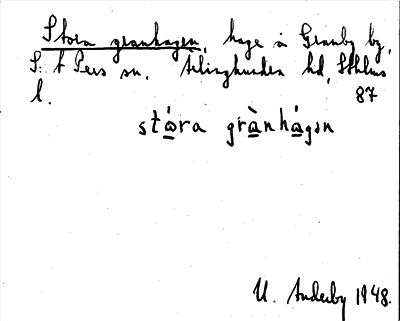 Stora granhagen, hage å Granby by,
S:t Pers sn, Ärlinghundra hd, Sthlms
l. 87
stώ̲ra grà̲nhá̲gən
U. Anderby 1948.